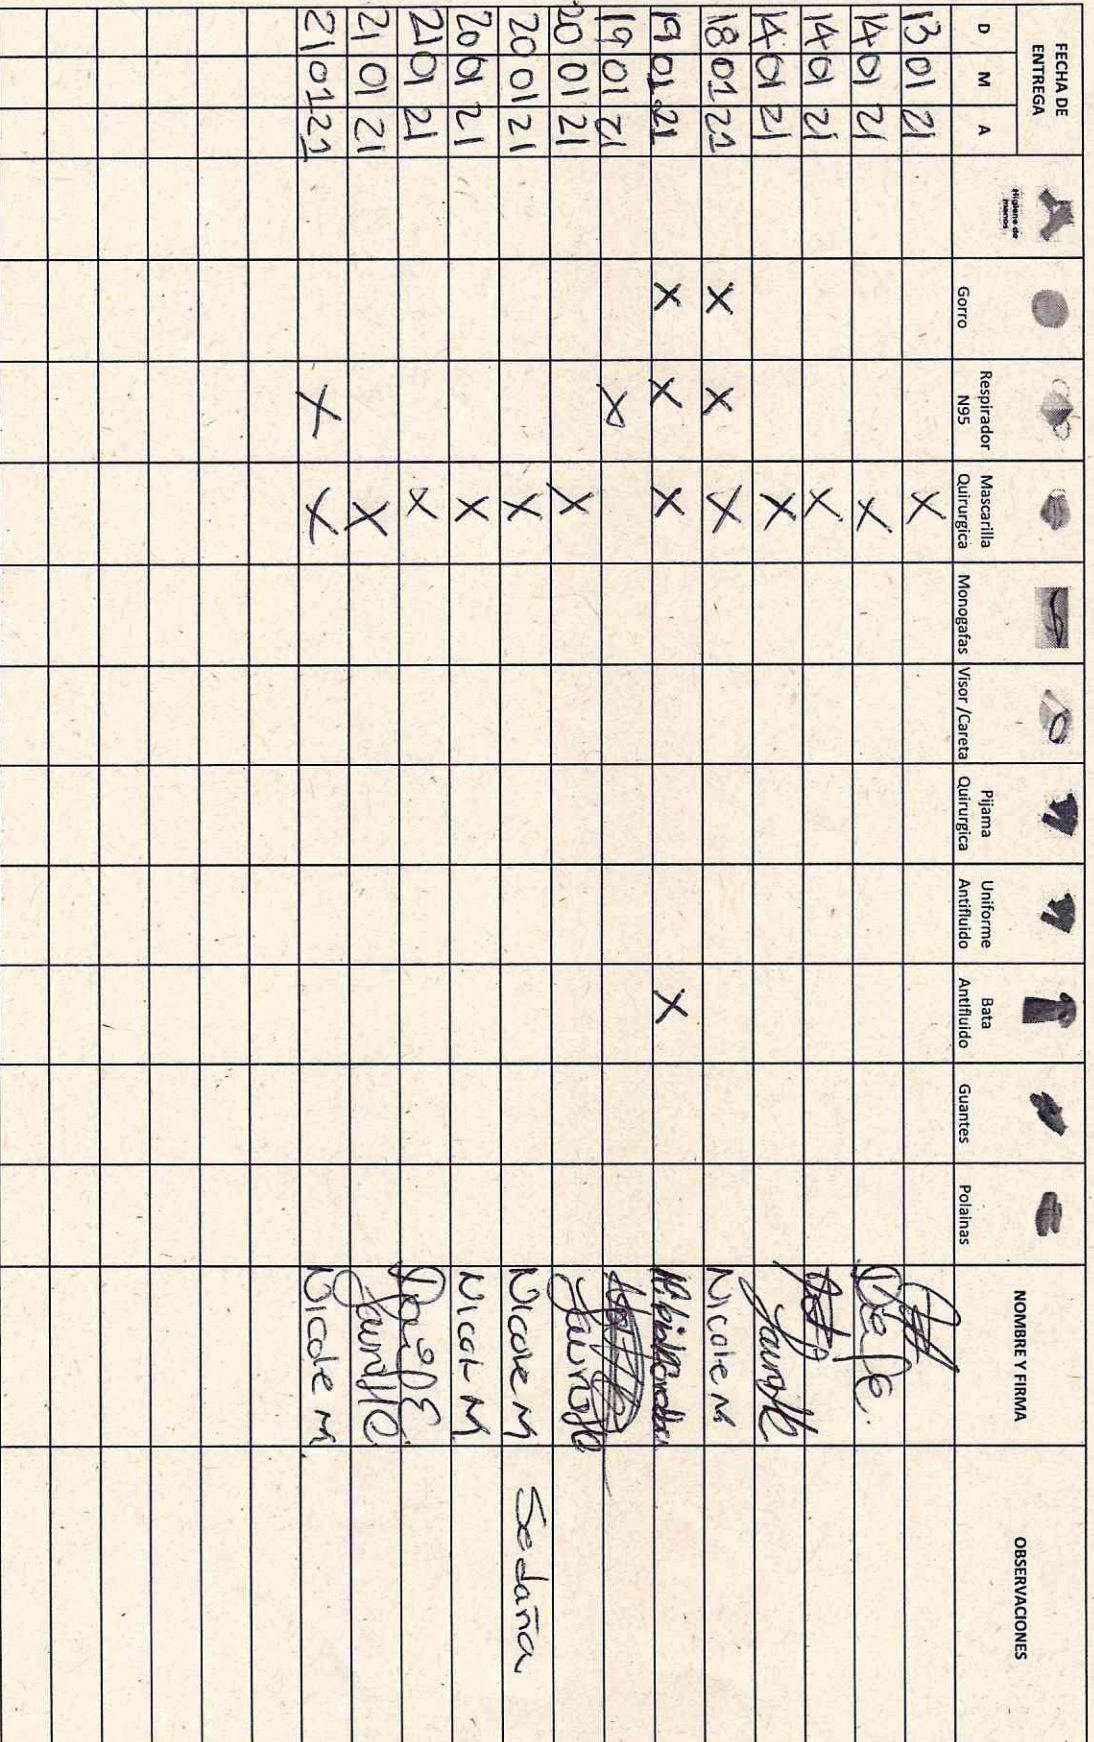 FECHA DE ENTREGA
D M A
Higiene de manos
Gorro
Respirador N95
Mascarilla Quirurgica
Monogafas
Visor /Careta
Pijama Quirurgica
Uniforme Antifluido
Bata Antifluido
Guantes
Polainas
NOMBRE Y FIRMA
OBSERVACIONES
13 01 21 X
14 01 21 X
14 01 21 X
14 01 21 X
18 01 21 X X X Nicole M
19 01 21 X X X X
19 01 21 X
20 01 21 X
20 01 21 X Nicole M Se daña
20 01 21 X Nicol M
21 01 21 X
21 01 21 X
21 01 21 X X Nicole M